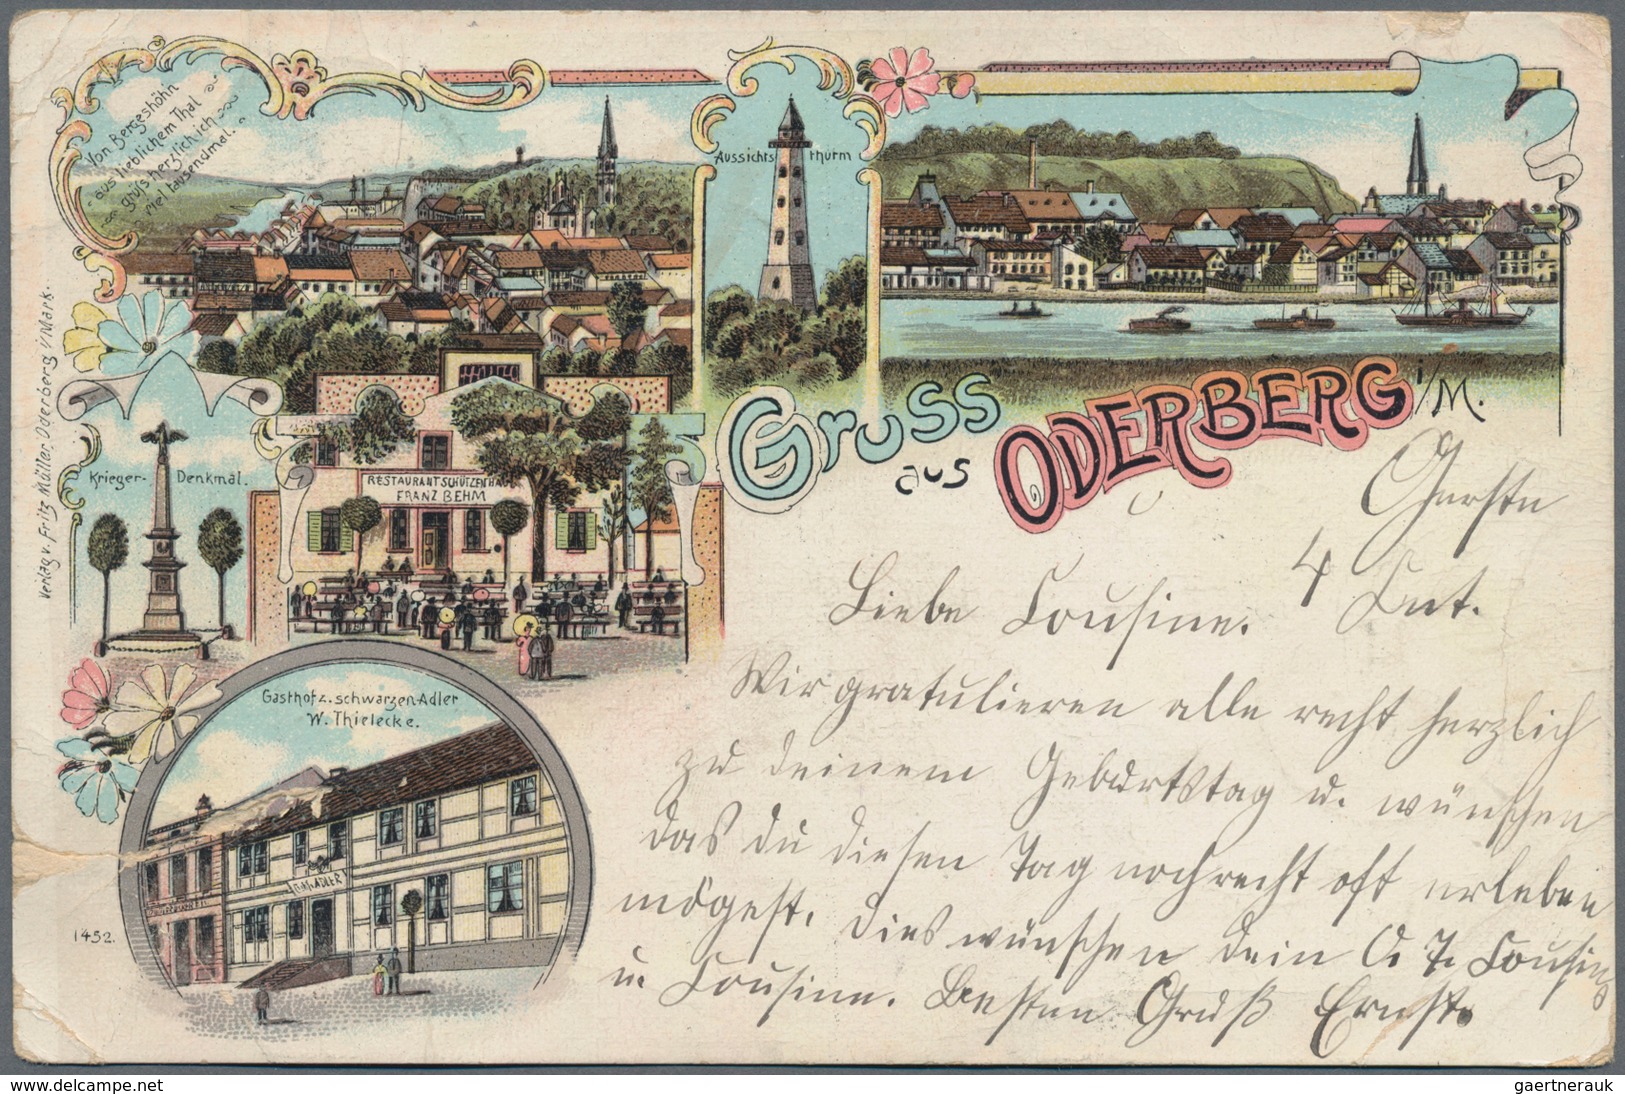 Von Bergeshöhn
aus lieblichem Thal
grüss herzlich ich
viel tausendmal.
Aussichts thurm
Gruss
aus ODERBERG i/M.
Verlag v. Fritz Müller, Oderberg i/Mark.
Krieger- Denkmal.
RESTAURANT SCHÜTZENHAUS
FRANZ BEHM
Gasthof z. schwarzen Adler
W. Thielecke.
ADLER
1452.
4
Liebe Cousine.
Wir gratulieren alle recht herzlich
zu deinem Geburtstag u. wünschen
das du diesen Tag noch recht oft erleben
mögest. Dies wünschen dein O. T. Cousins
u. Cousinen. Besten Gruß Ernst.
delcampe.net
gaertnerauk